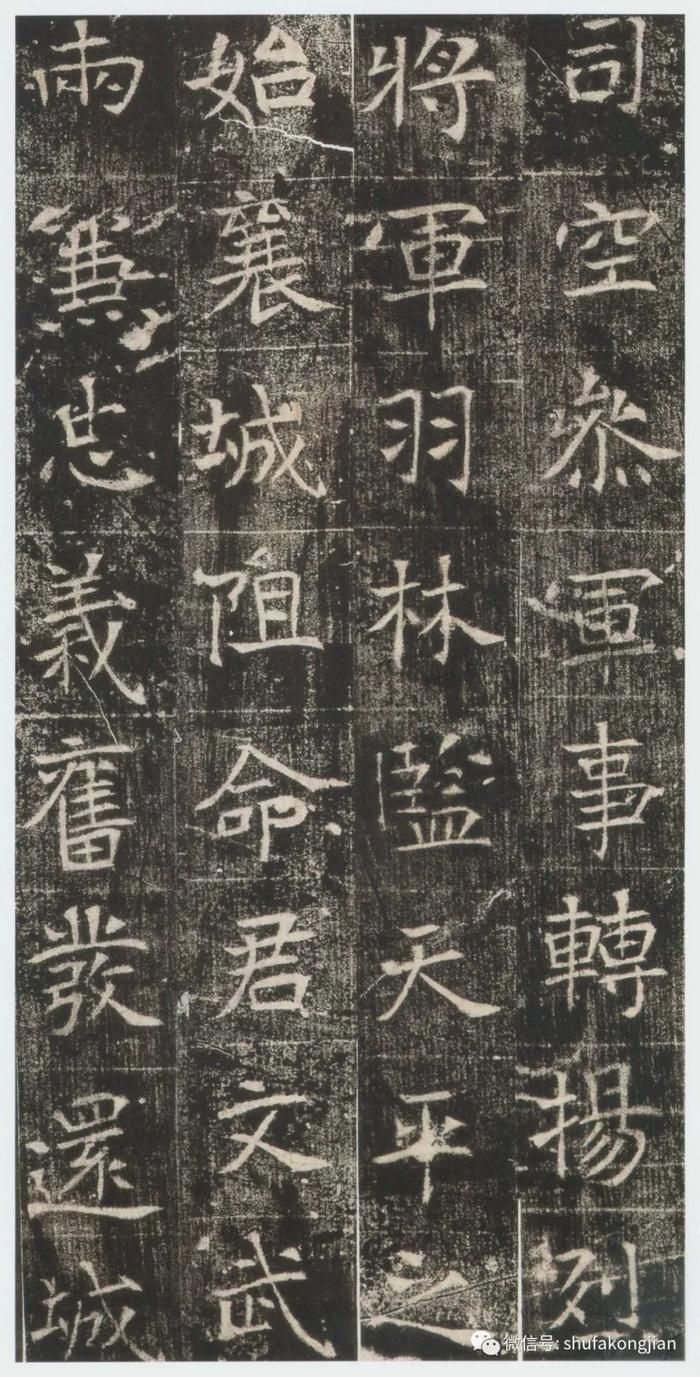 司空叅軍事轉揚列
將軍羽林監天平之
始襄城阻命君文武
兩兼忠義奮發還城
微信号: shufakongjian